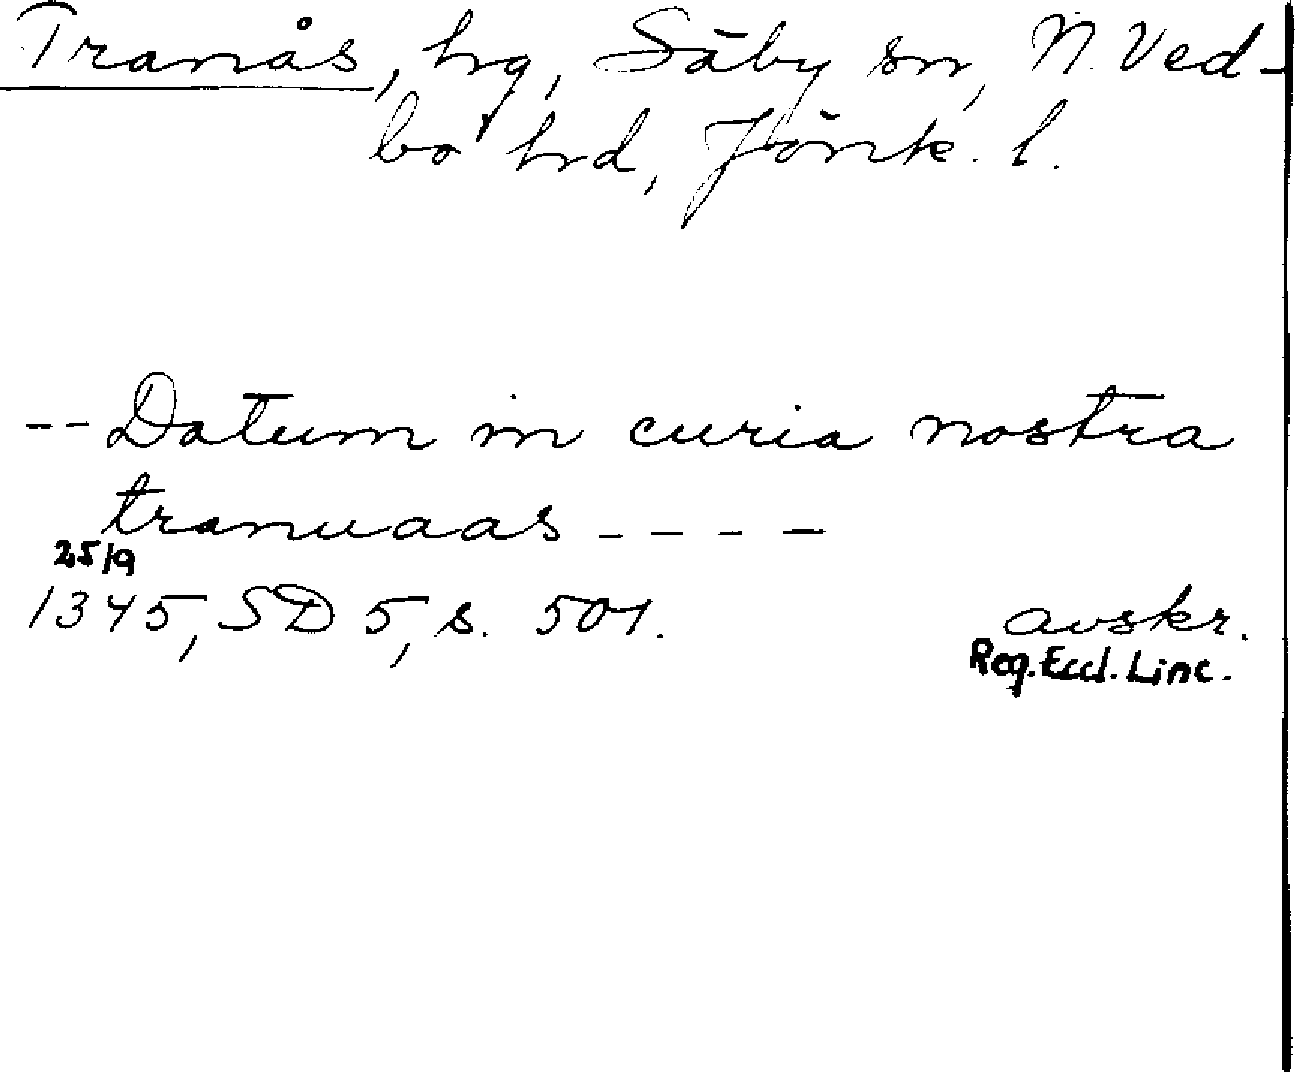 Tranås, hg, Säby sn, N. Ved-
bo hrd, Jönk. l.
-- Datum in curia nostra
tranuaas ----
25/9
1345, SD 5, s. 501.
avskr.
Reg. Eccl. Linc.